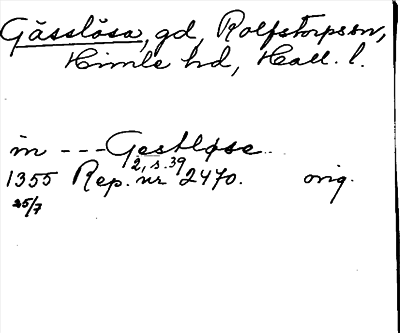 Gässlösa, gd, Rolfstorps sn,
Himle hd, Hall. l.
in --- Gestløse
2, s. 39
1355 Rep. nr 2470. orig.
25/7